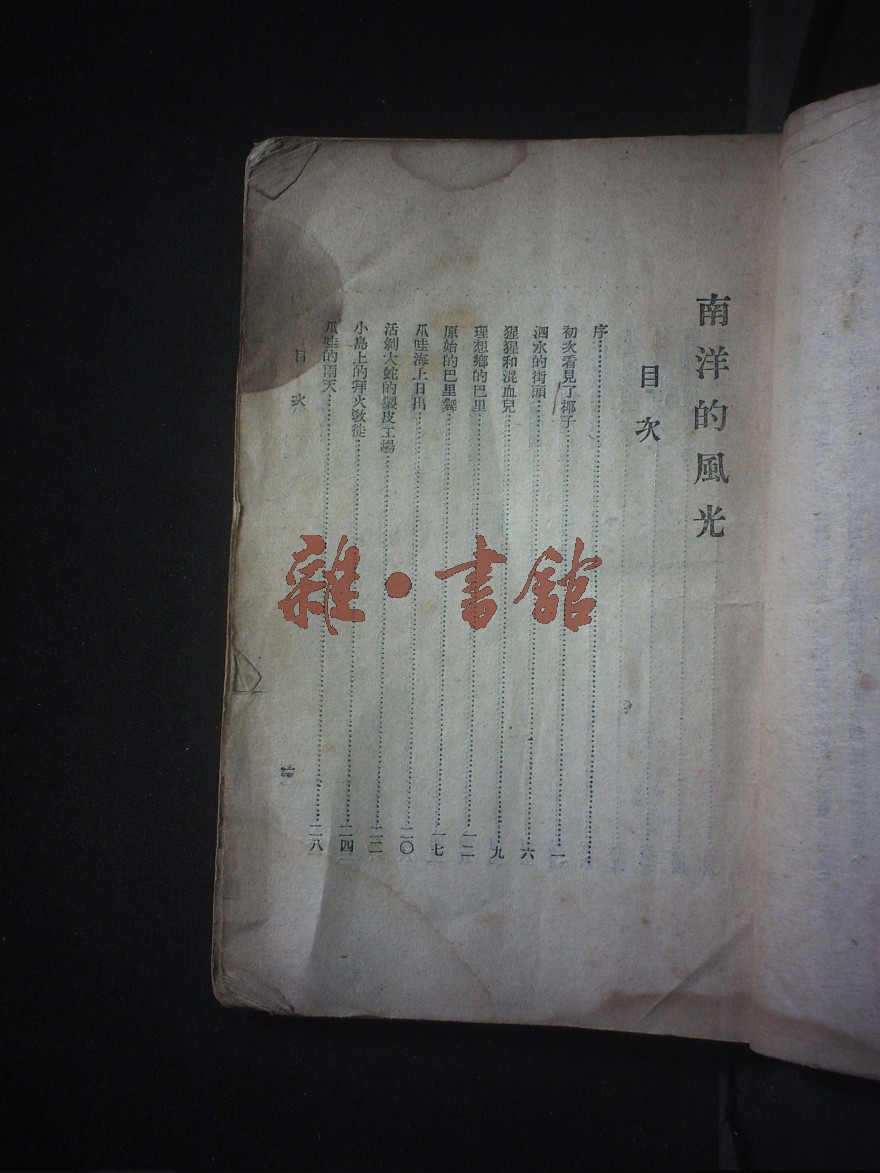 南洋的風光
目次
序
初次看見了椰子 一
泗水的街頭 六
猩猩和混血兒 九
理想鄉的巴里 一二
原始的巴里舞 一七
爪哇海上日出 二〇
活剝大蛇的製皮工場 二二
小島上的拜火教徒 二四
爪哇的雨天 二八
目次
雜·書館